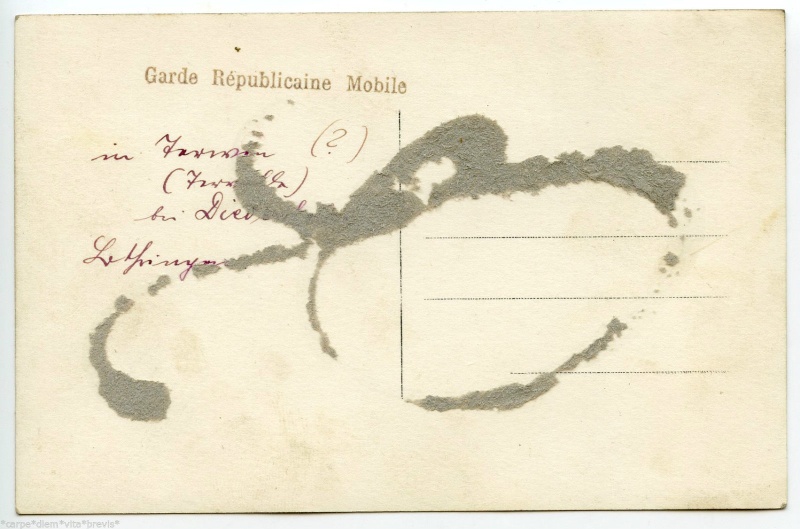 Garde Républicaine Mobile
in Terwen (?)
bei
Lothringen
*carpe*diem*vita*brevis*